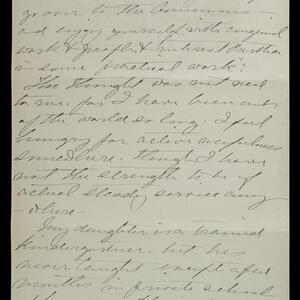 go over to the Commons -
and enjoy yourself with congenial
work & people, & interest Bertha
in some practical work".
The thought was not real
to me, for I have been out
of the world so long. I feel
hungry for active usefulness
somewhere. Though I have
not the strength to be of
actual steady service any
-where.
My daughter is a trained
kindergartner, but has
never taught except a few
months in private school